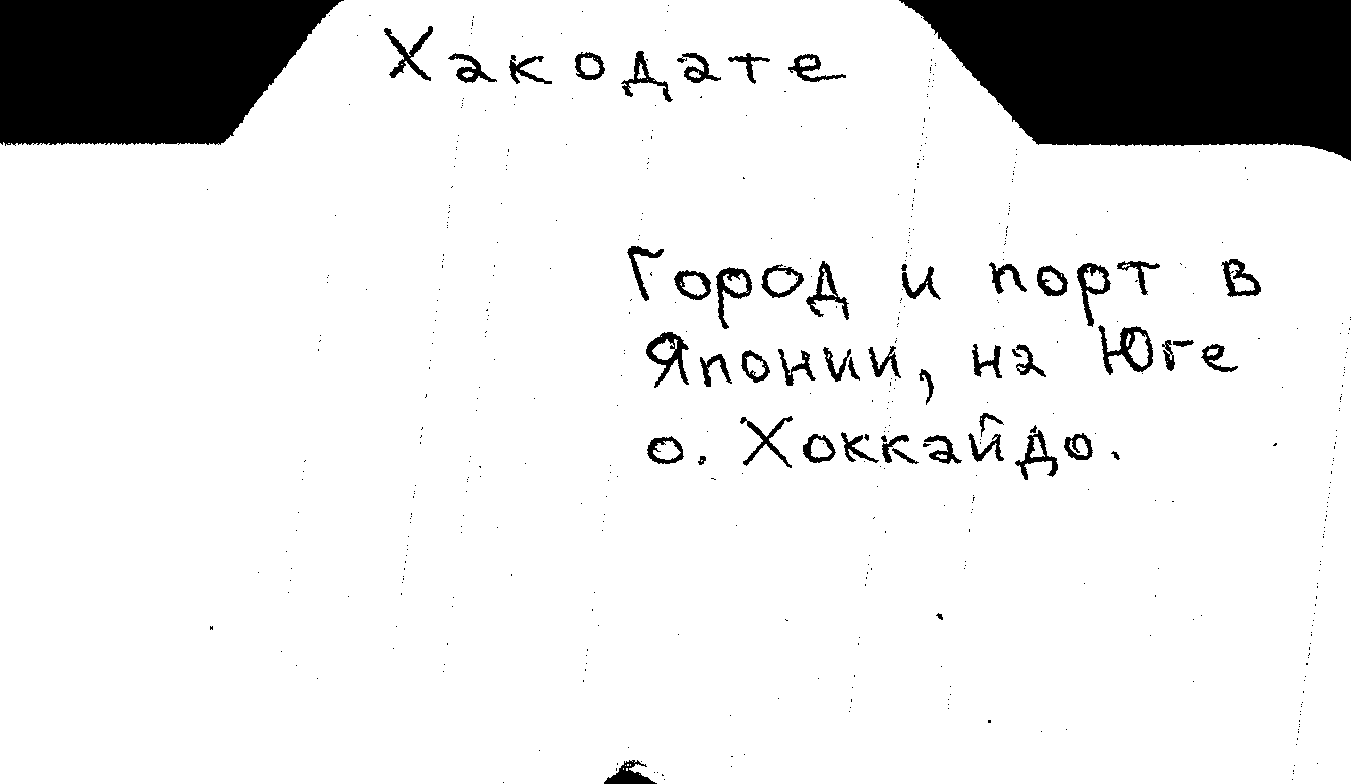 Хакодате
Город и порт в
Японии, на Юге
о. Хоккайдо.